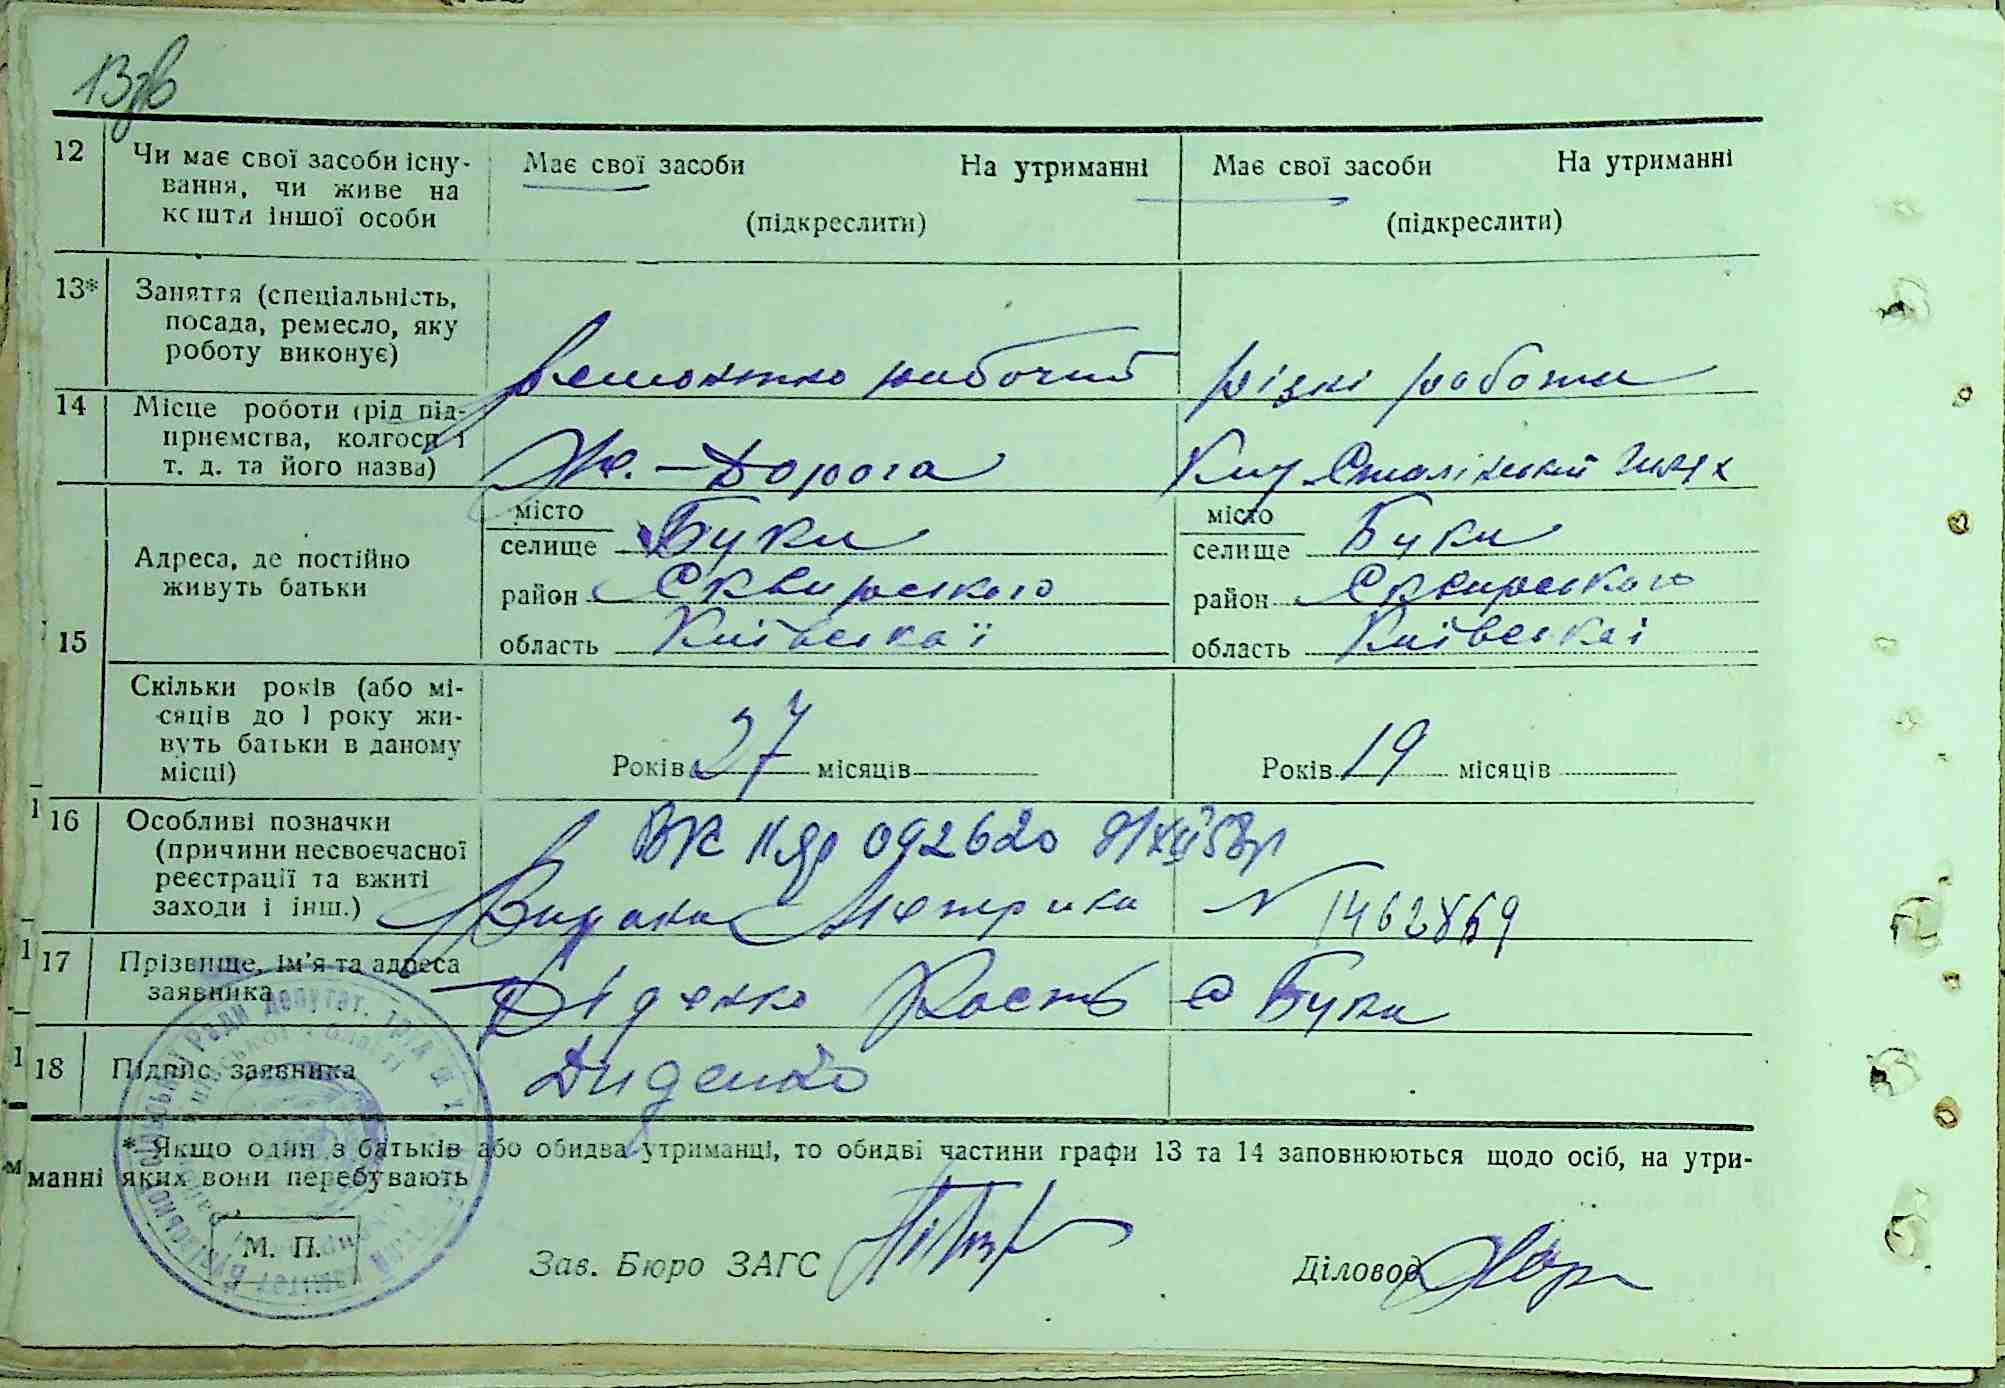 13зв
12 Чи має свої засоби існу- Має свої засоби На утриманні Має свої засоби На утриманні
вання, чи живе на
кошти іншої особи (підкреслити) (підкреслити)
13* Заняття (спеціальність,
посада, ремесло, яку
роботу виконує) ремонтно рабочий різні работи
14 Місце роботи (рід під-
приємства, колгосп і
т. д. та його назва) Ж.-Дорога Сталінський Шлях
місто місто
селище Буки селище Буки
Адреса, де постійно
живуть батьки
район Сквирського район Сквирського
15
область Київської область Київскої
Скільки років (або мі-
сяців до 1 року жи-
вуть батьки в даному
місці) Років 27 місяців Років 19 місяців
16 Особливі позначки
(причини несвоєчасної ВК 092620
реєстрації та вжиті
заходи і інш.) Видана Метрика N 1462869
17 Прізвище, ім'я та адреса
заявника Діденко Кость с Буки
18 Підпис заявника Диденко
* Якщо один з батьків або обидва утриманці, то обидві частини графи 13 та 14 заповнюються щодо осіб, на утри-
манні яких вони перебувають
М. П.
Зав. Бюро ЗАГС Діловод